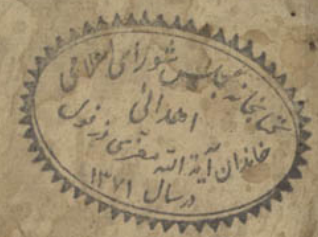 کتابخانه مجلس شورای اسلامی
اهدائی
خاندان آیة الله مقدسی دزفولی
در سال ۱۳۷۱